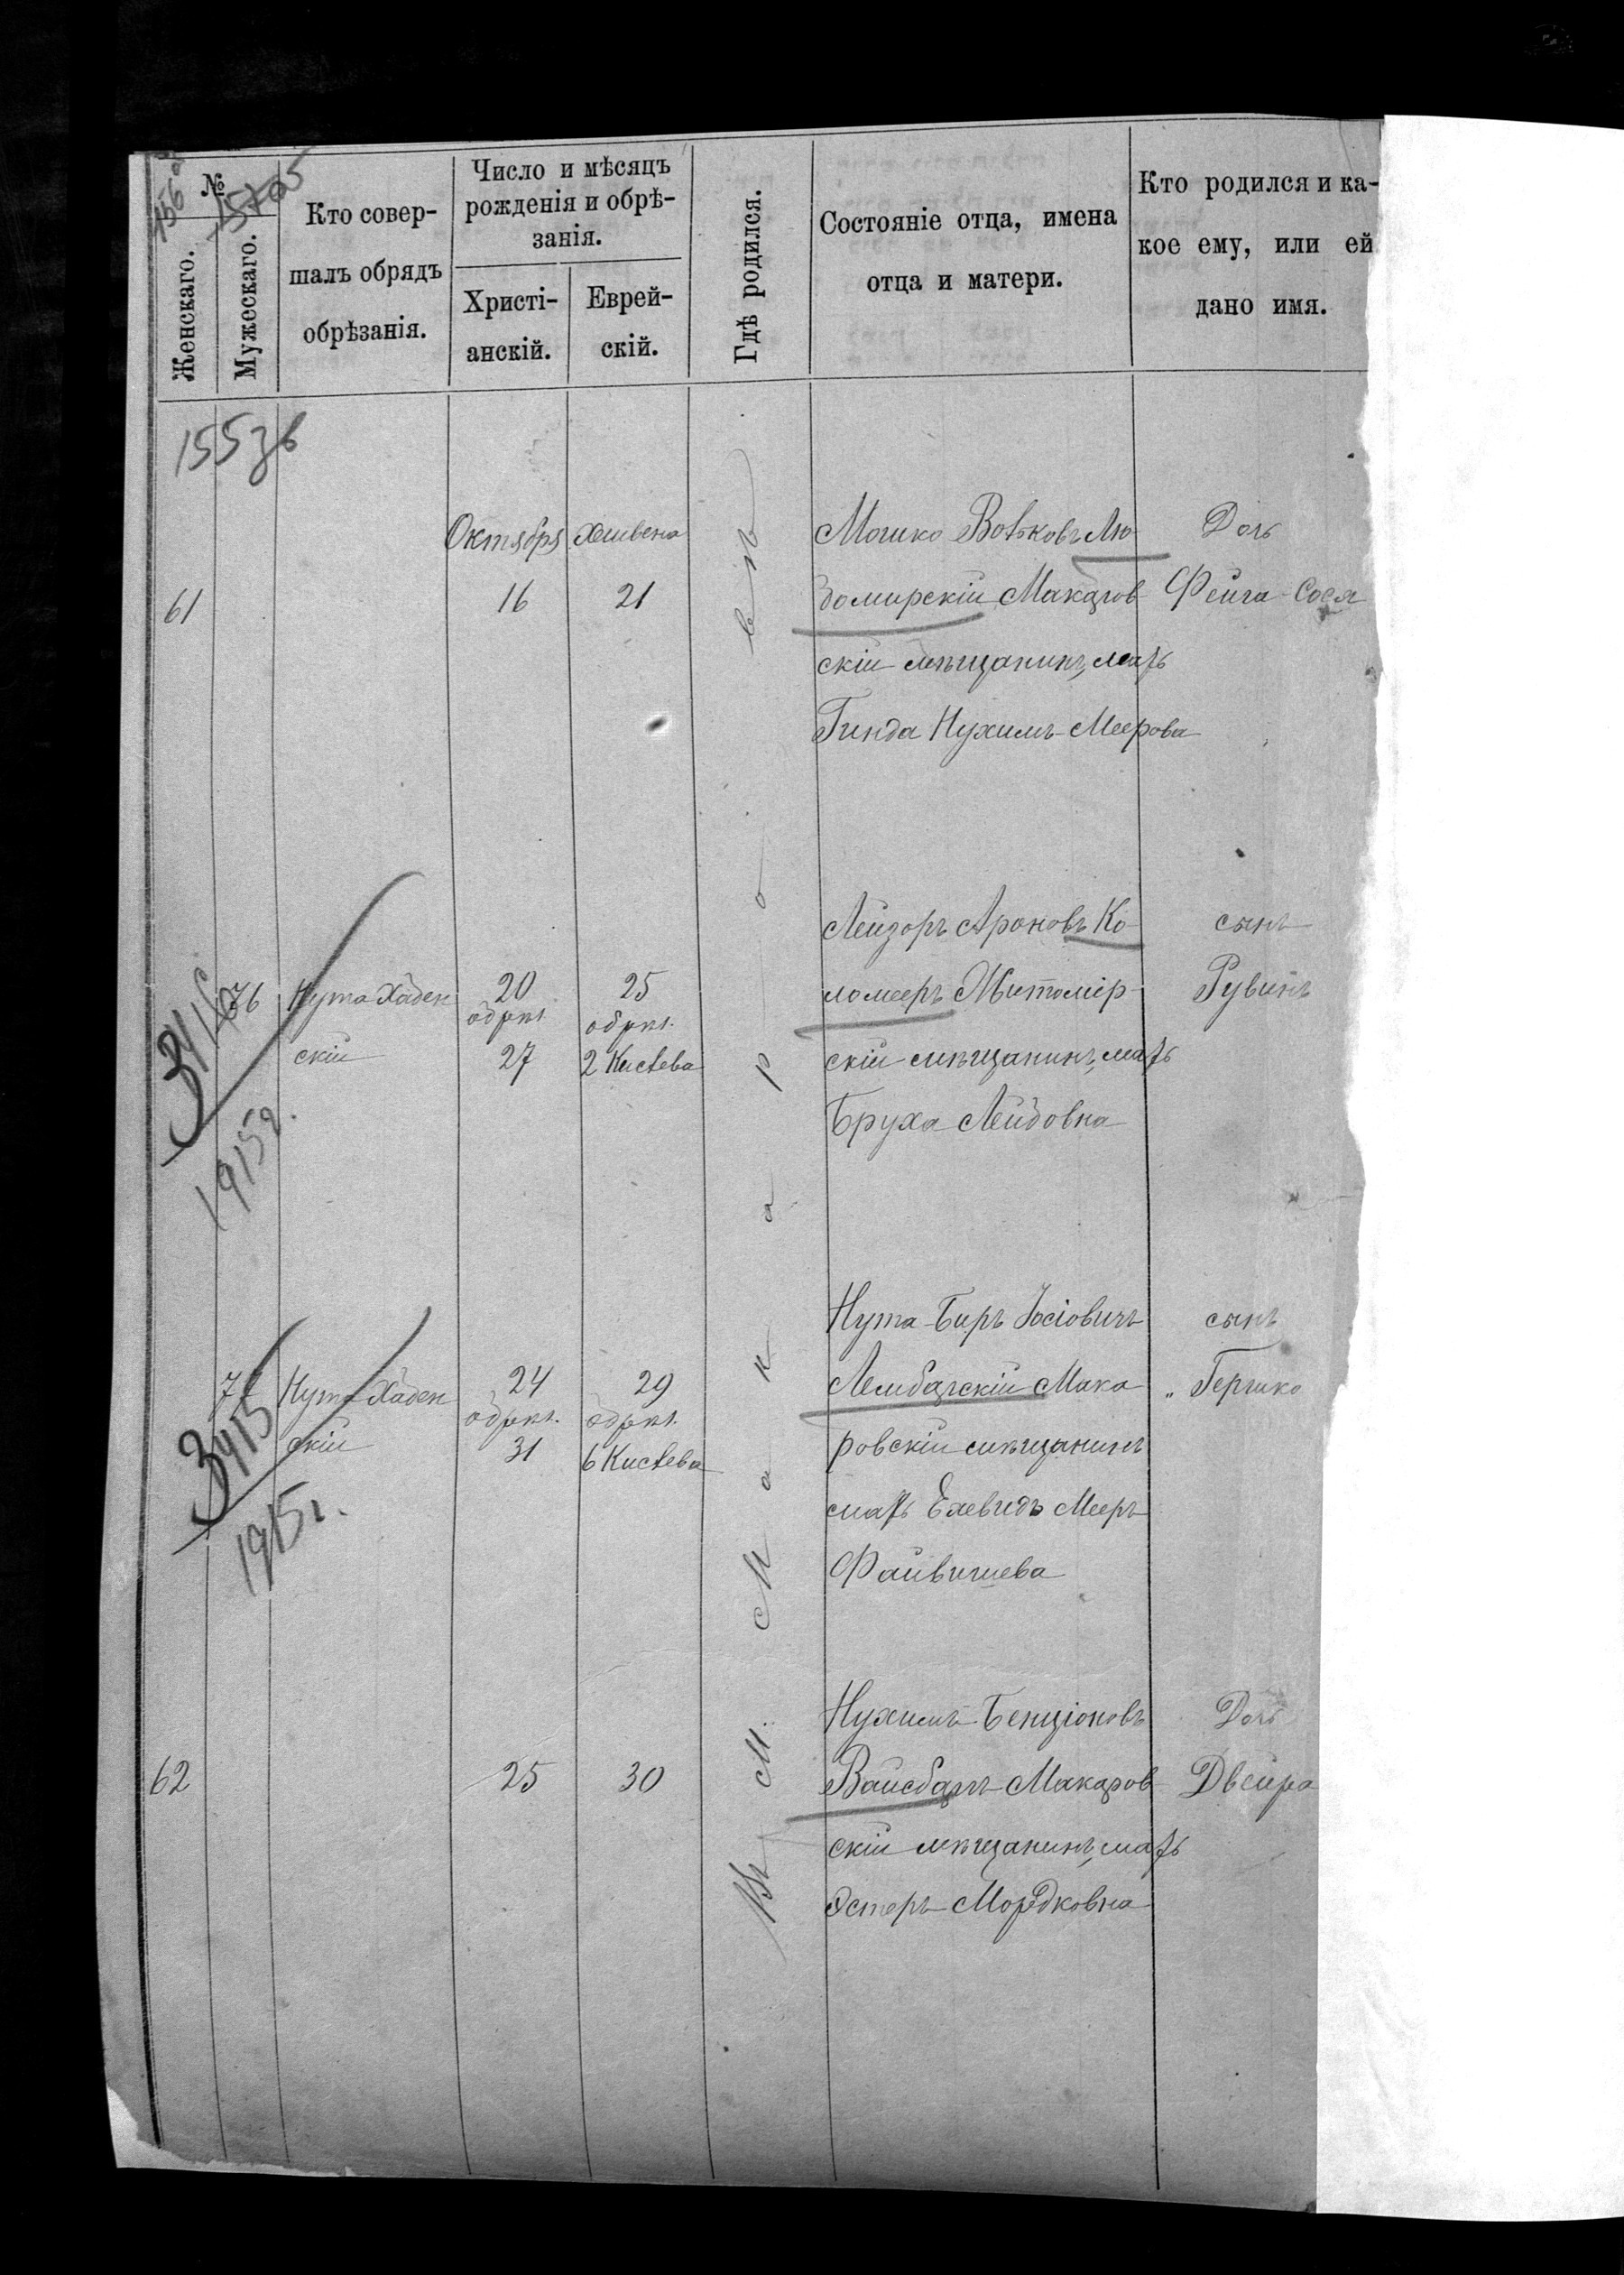 №
Женскаго.
Мужескаго.
Кто совер-
шалъ обрядъ
обрѣзанія.
Число и мѣсяцъ
рожденія и обрѣ-
занія.
Христі-
анскій.
Еврей-
скій.
Гдѣ родился.
Состояніе отца, имена
отца и матери.
Кто родился и ка-
кое ему, или ей
дано имя.
Въ м. Макаровѣ
Октября Хшвена
61 16 21
Мошко Вольковъ Лю-
домирскій Макаров
скій мѣщанинъ, мать
Гинда Нухимъ-Меерова
Дочь
Фейга-Сося
3416
1915г.
76 Нута Хаден
скій
20
обрѣз.
27
25
обрѣз.
2 Кислева
Лейзоръ Ароновъ Ко-
ломееръ Житомір-
скій мѣщанинъ, мать
Бруха Лейбовна
сынъ
Рувинъ
3415
1915г.
77 Нута Хаден
скій
24
обрѣз.
31
29
обрѣз.
6 Кислева
Нута-Беръ Іосіовичъ
Лембарскій Мака
ровскій мѣщанинъ
мать Мееръ
Файвишева
сынъ
Гершко
62 25 30
Нухимъ Бенціоновъ
Вайсбаръ Макаров
скій мѣщанинъ, мать
Эстеръ Мордковна
Дочь
Двейра